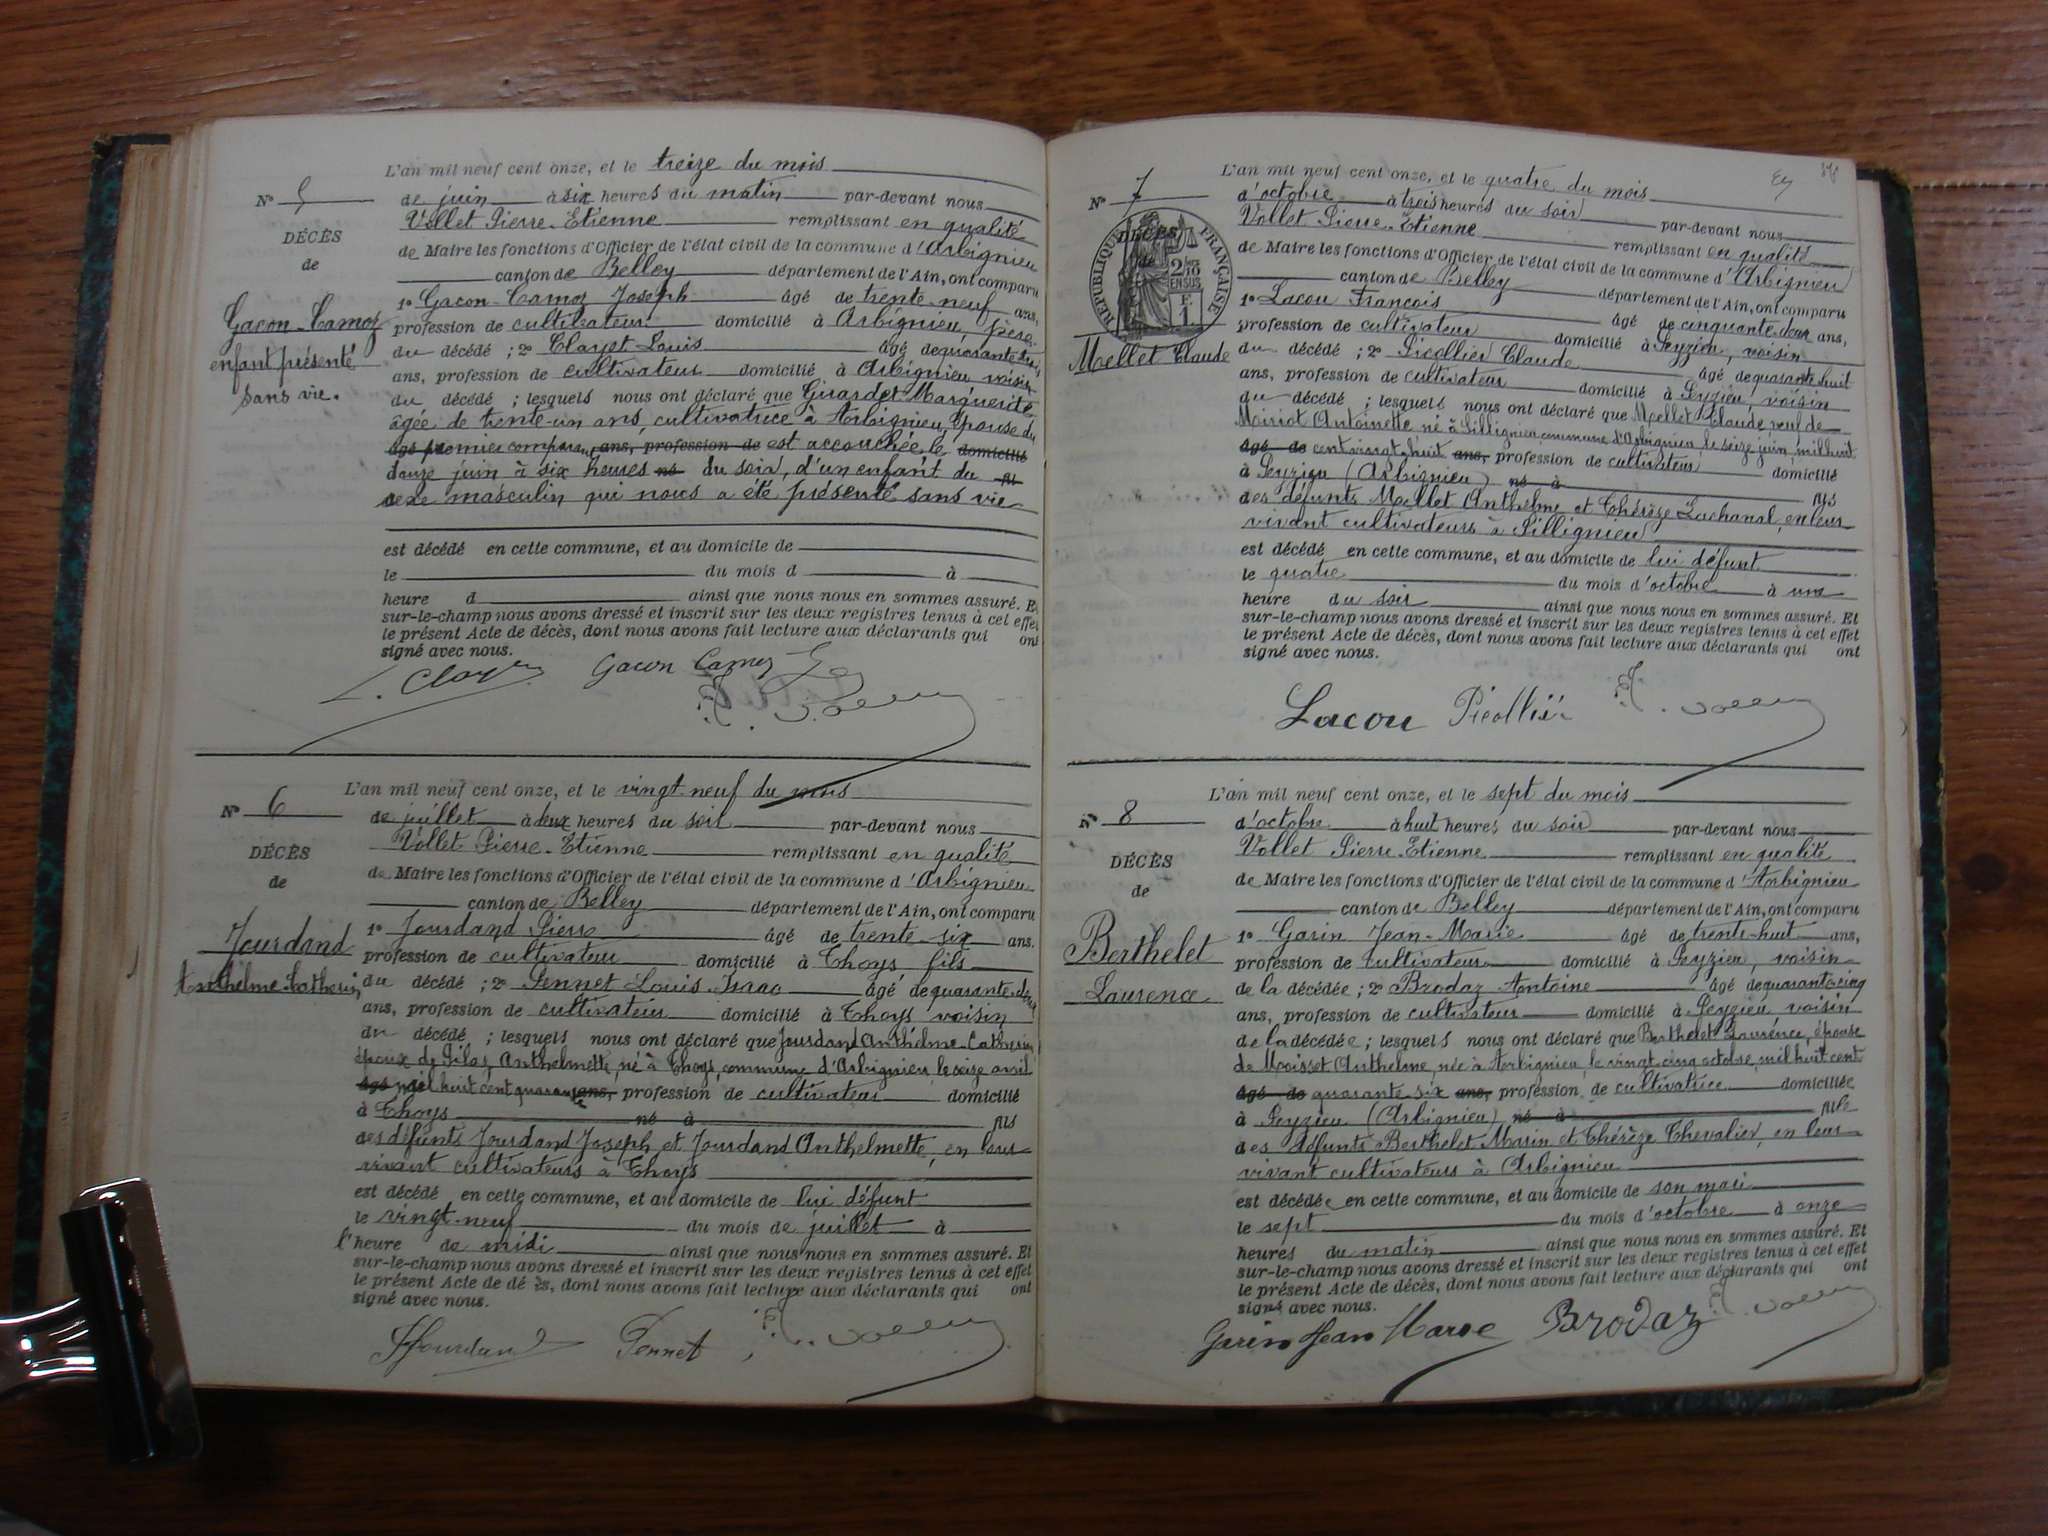 L'an mil neuf cent onze, et le treize du mois
N° 5
de juin à six heures du matin par-devant nous
Vollet Pierre-Etienne remplissant en qualité
DÉCÈS
de Maire les fonctions d'Officier de l'état civil de la commune d'Arbignieu
de
canton de Belley département de l'Ain, ont comparu
1° Gacon-Camoz Joseph âgé de trente-neuf ans,
Gacon-Camoz
profession de cultivateur domicilié à Arbignieu, père
du décédé ; 2° Clayet Louis âgé de quarante
enfant présenté
ans, profession de cultivateur domicilié à Arbignieu voisin
sans vie.
du décédé ; lesquels nous ont déclaré que Girardet Marguerite
âgée de trente-un ans, cultivatrice à Arbignieu, épouse du
âgé premier comparu, ans, profession de est accouchée le domicilié
douze juin à six heures né du soir, d'un enfant du fil
sexe masculin, qui nous a été présenté sans vie
est décédé en cette commune, et au domicile de
le du mois d à
heure d ainsi que nous nous en sommes assuré. Et
sur-le-champ nous avons dressé et inscrit sur les deux registres tenus à cet effet
le présent Acte de décès, dont nous avons fait lecture aux déclarants qui ont
signé avec nous.
Gacon Camoz
L'an mil neuf cent onze, et le vingt-neuf du mois
N° 6
de juillet à deux heures du soir par-devant nous
Vollet Pierre-Etienne remplissant en qualité
DÉCÈS
de Maire les fonctions d'Officier de l'état civil de la commune d'Arbignieu
de
canton de Belley département de l'Ain, ont comparu
1° Jourdand Pierre âgé de trente-six ans.
Jourdand
profession de cultivateur domicilié à Thoys, fils
Anthelme-Catherin
du décédé ; 2° Pennet Louis-Isaac âgé de quarante-deux
ans, profession de cultivateur domicilié à Thoys voisin
du décédé ; lesquels nous ont déclaré que Jourdand Anthelme-Catherin
époux de Pilaz Anthelmette, né à Thoys, commune d'Arbignieu, le seize avril
âgé mil huit cent quarante ans, profession de cultivateur domicilié
à Thoys né à fils
des défunts Jourdand Joseph et Jourdand Anthelmette, en leur
vivant cultivateurs à Thoys
est décédé en cette commune, et au domicile de lui défunt
le vingt-neuf du mois de juillet à
l'heure de midi ainsi que nous nous en sommes assuré. Et
sur-le-champ nous avons dressé et inscrit sur les deux registres tenus à cet effet
le présent Acte de dé ès, dont nous avons fait lecture aux déclarants qui ont
signé avec nous.
Jourdand Pennet
L'an mil neuf cent onze, et le quatre du mois
N° 7
d'octobre à trois heures du soir par-devant nous
Vollet Pierre-Etienne remplissant en qualité
DÉCÈS
de
RÉPUBLIQUE FRANÇAISE
2/10 EN SUS
F. 1
de Maire les fonctions d'Officier de l'état civil de la commune d'Arbignieu
canton de Belley département de l'Ain, ont comparu
1° Lacou François âgé de cinquante-deux ans,
profession de cultivateur domicilié à Peyzieu, voisin
Mollet Claude
du décédé ; 2° Picollier Claude âgé de quarante-huit
ans, profession de cultivateur domicilié à Peyzieu, voisin
du décédé ; lesquels nous ont déclaré que Mollet Claude, veuf de
Antoinette né à Sillignieu, commune d'Arbignieu, le seize juin, mil huit
âgé de cent vingt-huit ans, profession de cultivateur domicilié
à Peyzieu (Arbignieu) né à fils
des défunts Mollet Anthelme et Thérèse Lachanal, en leur
vivant cultivateurs à Sillignieu
est décédé en cette commune, et au domicile de lui défunt
le quatre du mois d'octobre à une
heure du soir ainsi que nous nous en sommes assuré. Et
sur-le-champ nous avons dressé et inscrit sur les deux registres tenus à cet effet
le présent Acte de décès, dont nous avons fait lecture aux déclarants qui ont
signé avec nous.
Lacou Picollier
L'an mil neuf cent onze, et le sept du mois
N° 8
d'octobre à huit heures du soir par-devant nous
Vollet Pierre-Etienne remplissant en qualité
DÉCÈS
de Maire les fonctions d'Officier de l'état civil de la commune d'Arbignieu
de
canton de Belley département de l'Ain, ont comparu
1° Garin Jean-Marie âgé de trente-huit ans,
Berthelet
profession de cultivateur domicilié à Peyzieu, voisin
Laurence
de la décédée ; 2° Brodaz Antoine âgé de quarante-cinq
ans, profession de cultivateur domicilié à Peyzieu, voisin
de la décédée ; lesquels nous ont déclaré que Berthelet Laurence, épouse
de Moisset Anthelme, née à Arbignieu, le vingt-cinq octobre, mil huit cent
âgé de quarante-six ans, profession de cultivatrice domiciliée
à Peyzieu (Arbignieu) né à fille
des défunts Berthelet Marin et Thérèze Chevalier, en leur
vivant cultivateurs à Arbignieu
est décédée en cette commune, et au domicile de son mari
le sept du mois d'octobre à onze
heures du matin ainsi que nous nous en sommes assuré. Et
sur-le-champ nous avons dressé et inscrit sur les deux registres tenus à cet effet
le présent Acte de décès, dont nous avons fait lecture aux déclarants qui ont
signé avec nous.
Garin Jean Marie Brodaz